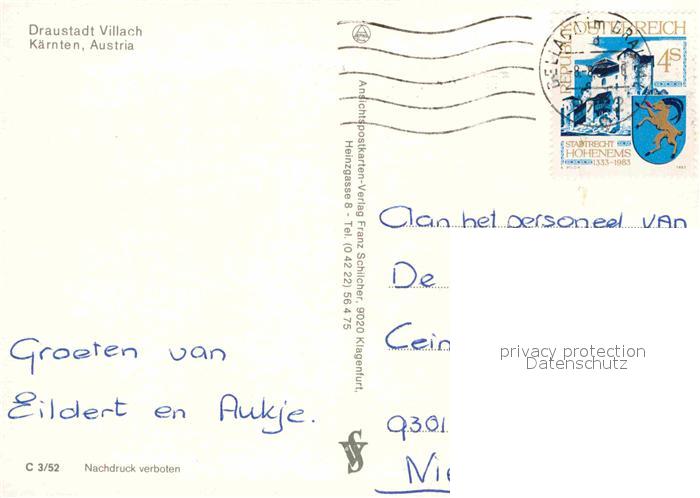 Draustadt Villach
Kärnten, Austria
REPUBLIK ÖSTERREICH
4S
STADTRECHT
HOHENEMS
1333-1983
1983
Ansichtspostkarten-Verlag Franz Schilcher, 9020 Klagenfurt,
Heinzgasse 8 - Tel. (0 42 22) 56 4 75
Aan het personeel van
De
Cein
9301
Nie
privacy protection
Datenschutz
Groeten van
Eildert en Aukje.
C 3/52 Nachdruck verboten